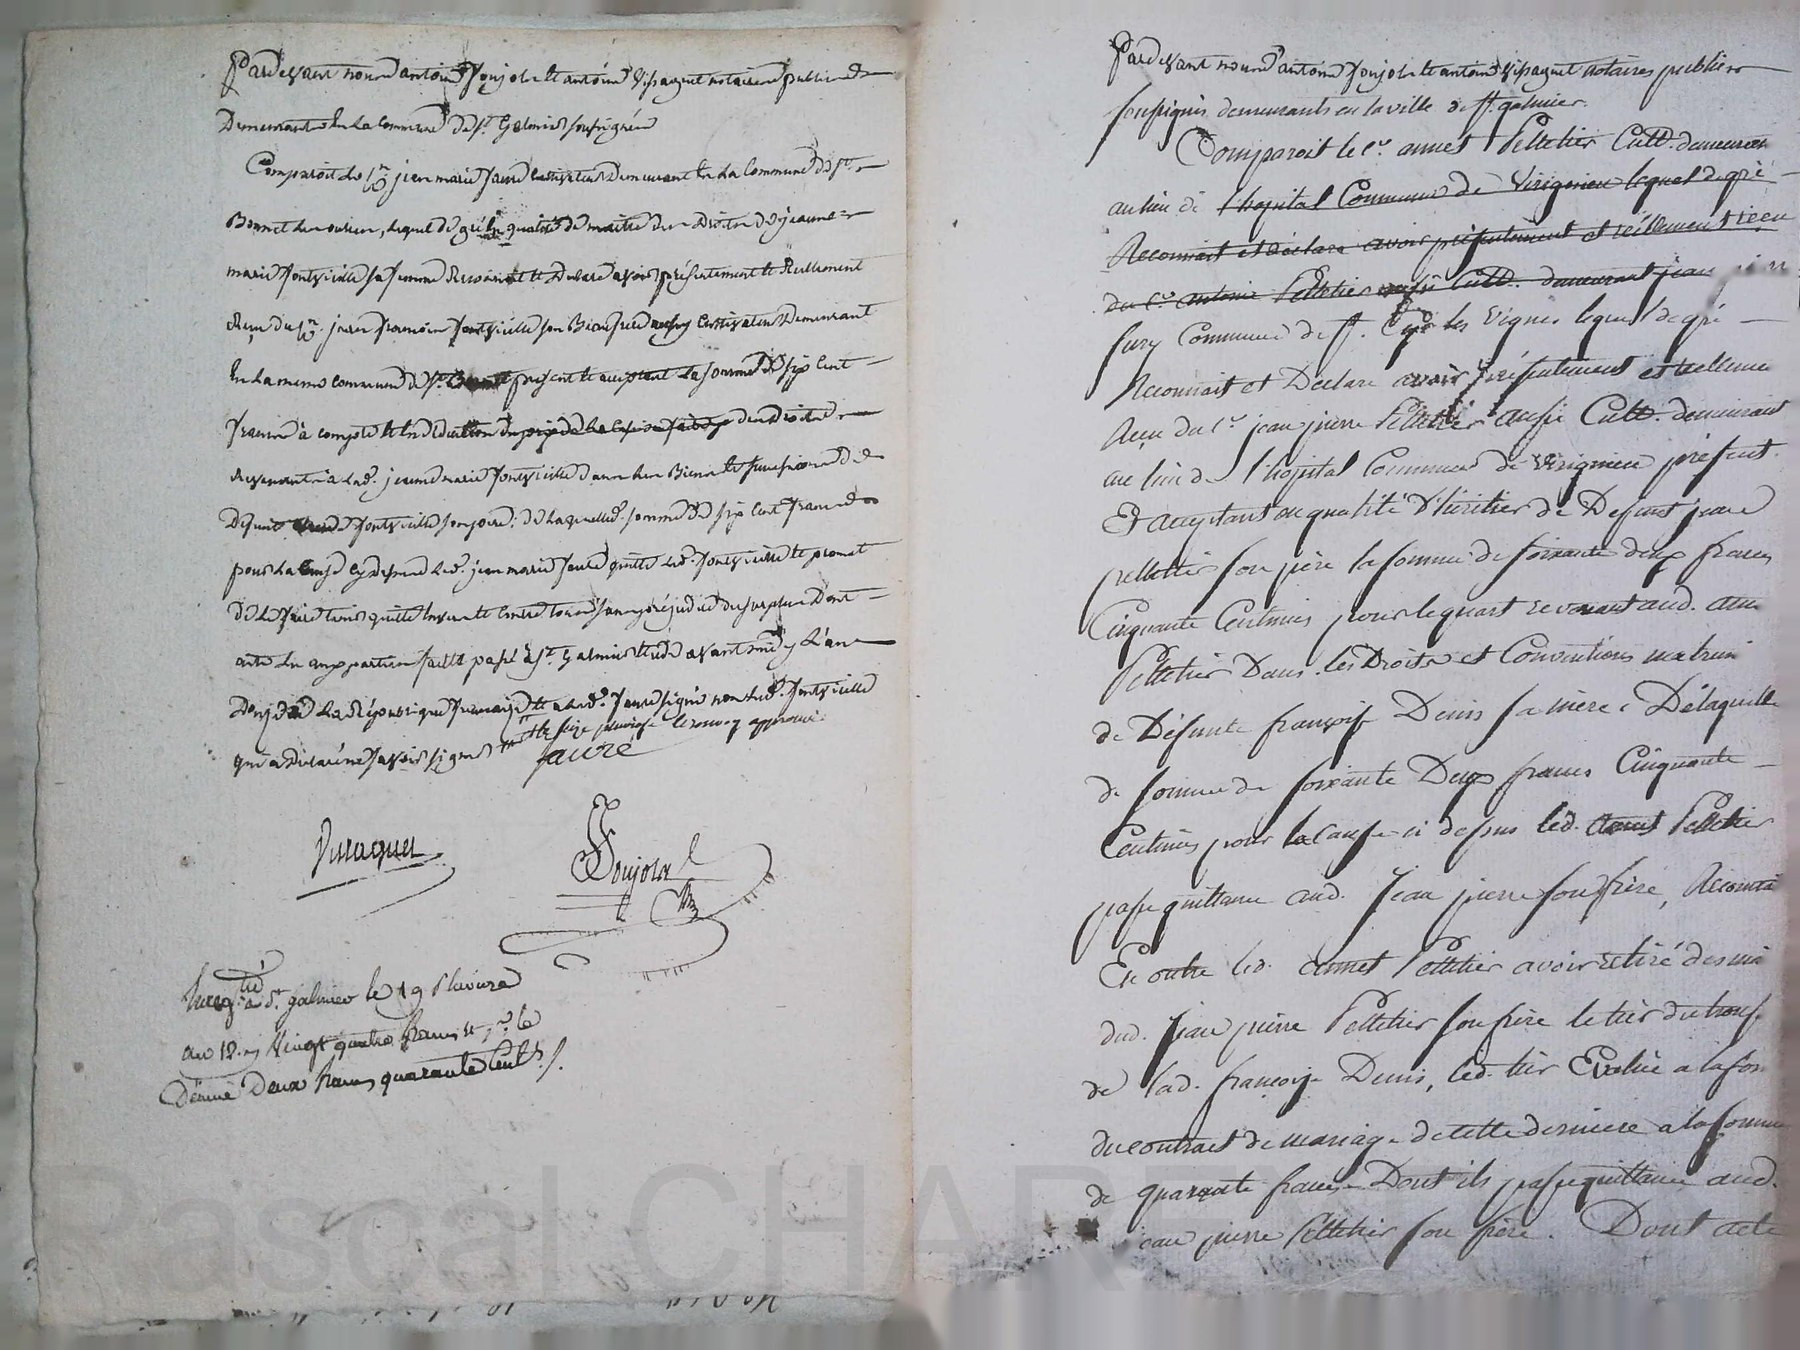 Pardevant nous antoine Poujol et antoine Visaguet notaires publics
Demeurants en la commune de st. Galmier soussignés
Comparoit le sr. jean marie faure cultivateur demeurant en la Commune de st.
Bonnet les oules, lequel de gré en qualité de maitre des Droits de jeanne
marie fontvieille sa femme Reconnoit et Declare avoir présentement et Reellement
Reçu du sr. fontvieille son Beaufrere aussy Cultivateur Demeurant
En la meme commune de st. Bonnet present et acceptant La somme de six cent
francs à compte et en deduction des droits
Revenants à lad. jeanne marie fontvieille dans les Biens et succession de
Defunt fontvieille son pere; de Laquelle somme de six cent francs
pour la cause cy dessus led. jean marie faure quitte led. fontvieille et promet
de le faire tenir quitte envers et contre tous sans préjudice du surplus Dont
acte en aux parties fait et passé à st. Galmier avant midy L'an
Douze de la République française et a led. faure signé non led. fontvieille
qui a Déclaré ne savoir signer le seize pluviose le renvoy approuvé
faure
Visaguet
Poujol
Enregtré à St. galmier le 19 Pluviose
an 12. Vingt quatre francs
Dixme Deux francs quarante Cent. /.
Pardevant nous antoine Poujol et antoine Visaguet notaires publics
soussignés demeurants en la ville de st. galmier.
Comparoit le Cn. annet Pelletier Cult. demeurant
au lieu de l'hopital Commune de Virignieu lequel de gré
Reconnait et Déclare avoir présentement et réellement reçu
du Cn. antoine Pelletier aussi Cult. demeurant jean
sury Commune de st. Cyr les Vignes lequel de gré
Reconnait et Déclare avoir présentement et réellement
Reçu du Cn. jean pierre Pelletier aussi Cult. demeurant
au lieu de l'hopital Commune de Virignieu présent
Et acceptant en qualité d'héritier de Defunt jean
pelletier son père la somme de soixante deux francs
Cinquante Centimes pour le quart revenant aud. annet
Pelletier Dans les Droits et Conventions matrim
de Défunte françoise Denis sa mère, De laquelle
de somme de soixante Deux francs Cinquante
Centimes pour la cause ci dessus led. annet Pelletier
passe quittance aud. Jean pierre son frère, Reconnait
En outre led. annet Pelletier avoir retiré des mains
dud. Jean pierre Pelletier son frère le tier du trouss
de lad. françoise Denis, led. tier Evalué a la for
du contrat de mariage de cette derniere a la somme
de quarante francs Dont ils passe quittance aud.
jean pierre Pelletier son frère. Dont acte
Pascal CHAR